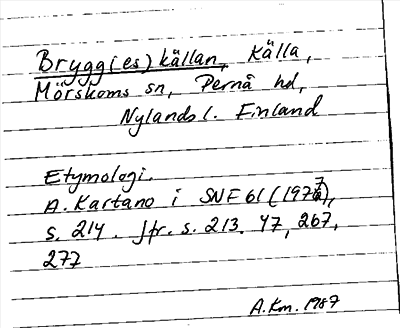 Brygg(es)källan, Källa,
Mörskoms sn, Pernå hd,
Nylands l. Finland
Etymologi.
A. Kartano i SNF 61 (1977),
s. 214. Jfr. s. 213. 47, 267,
277
A.Km. 1987